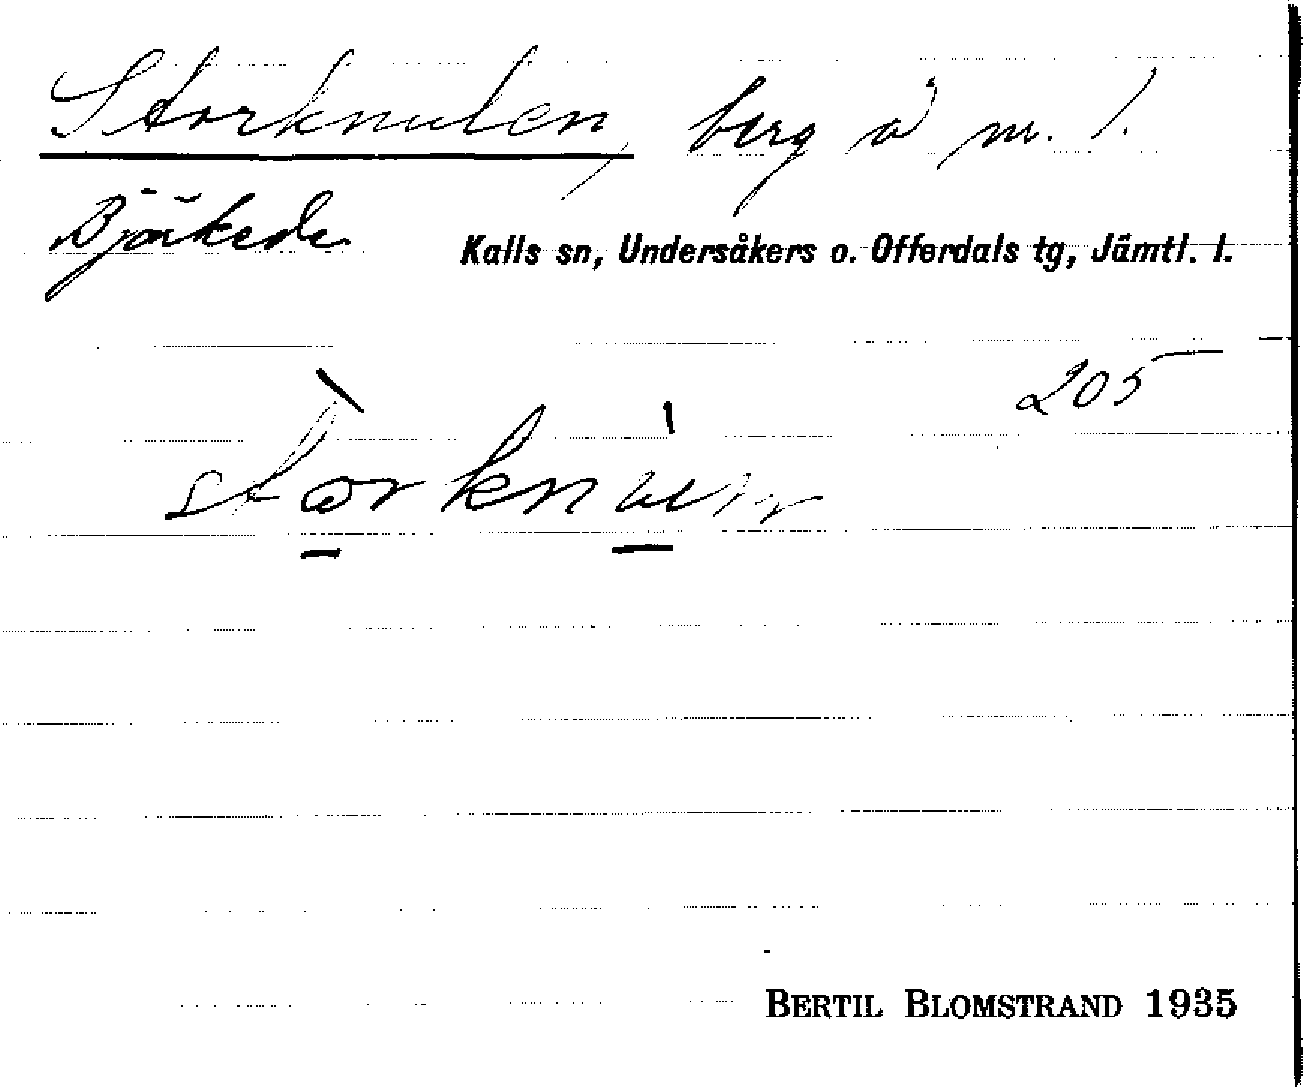 Storknulen, berg å nr. 1.
Björkede
Kalls sn, Undersåkers o. Offerdals tg, Jämtl. l.
205
BERTIL BLOMSTRAND 1935